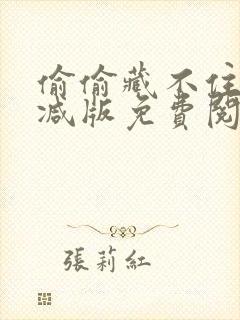 偷偷藏不住
减版免費閱
張莉紅